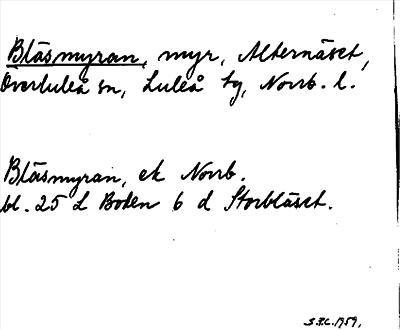 Bläsmyran, myr, Alternäset,
Överluleå sn, Luleå tg, Norrb. l.
Bläsmyran, ek Norrb.
bl. 25 L Boden 6 d Storbläset.
S.F.C. 1959.